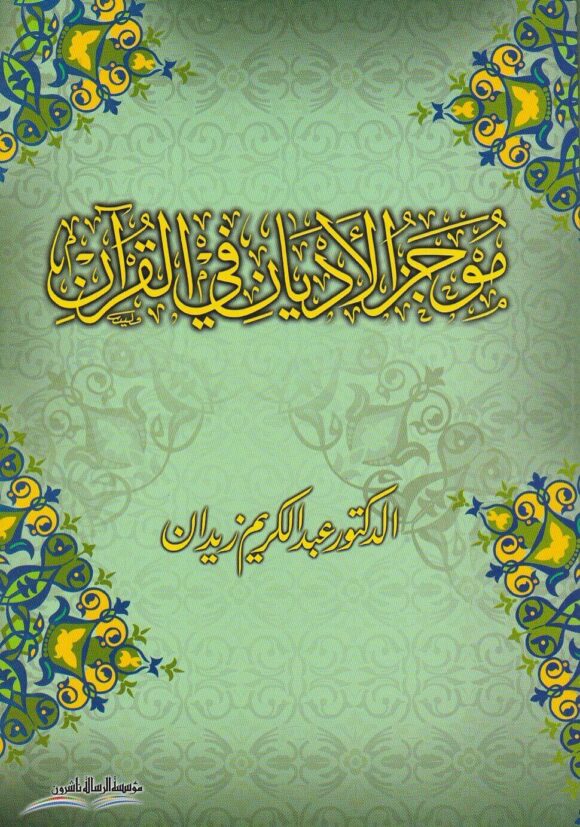 مُوجَزُ الأَدْيَانِ فِي القُرْآنِ
الدكتور عبد الكريم زيدان
مؤسسة الرسالة ناشرون